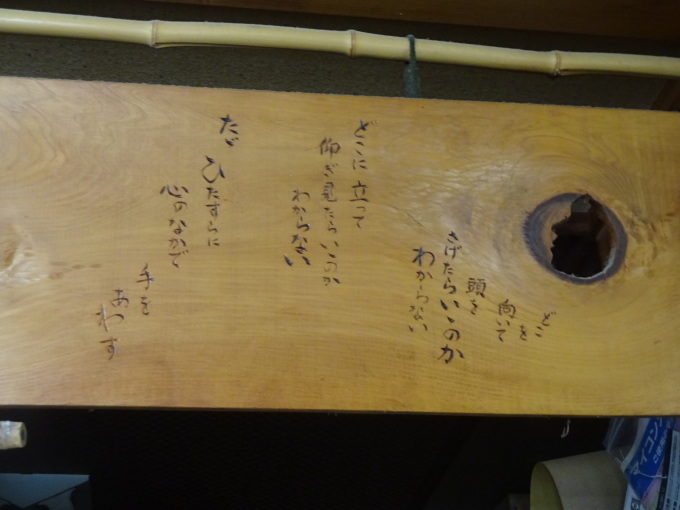 どこ
を
向いて
頭を
さげたらいいのか
わからない
どこに 立って
仰ぎ見たらいいのか
わからない
たゞ ひたすらに
心のなかで
手を
あわす